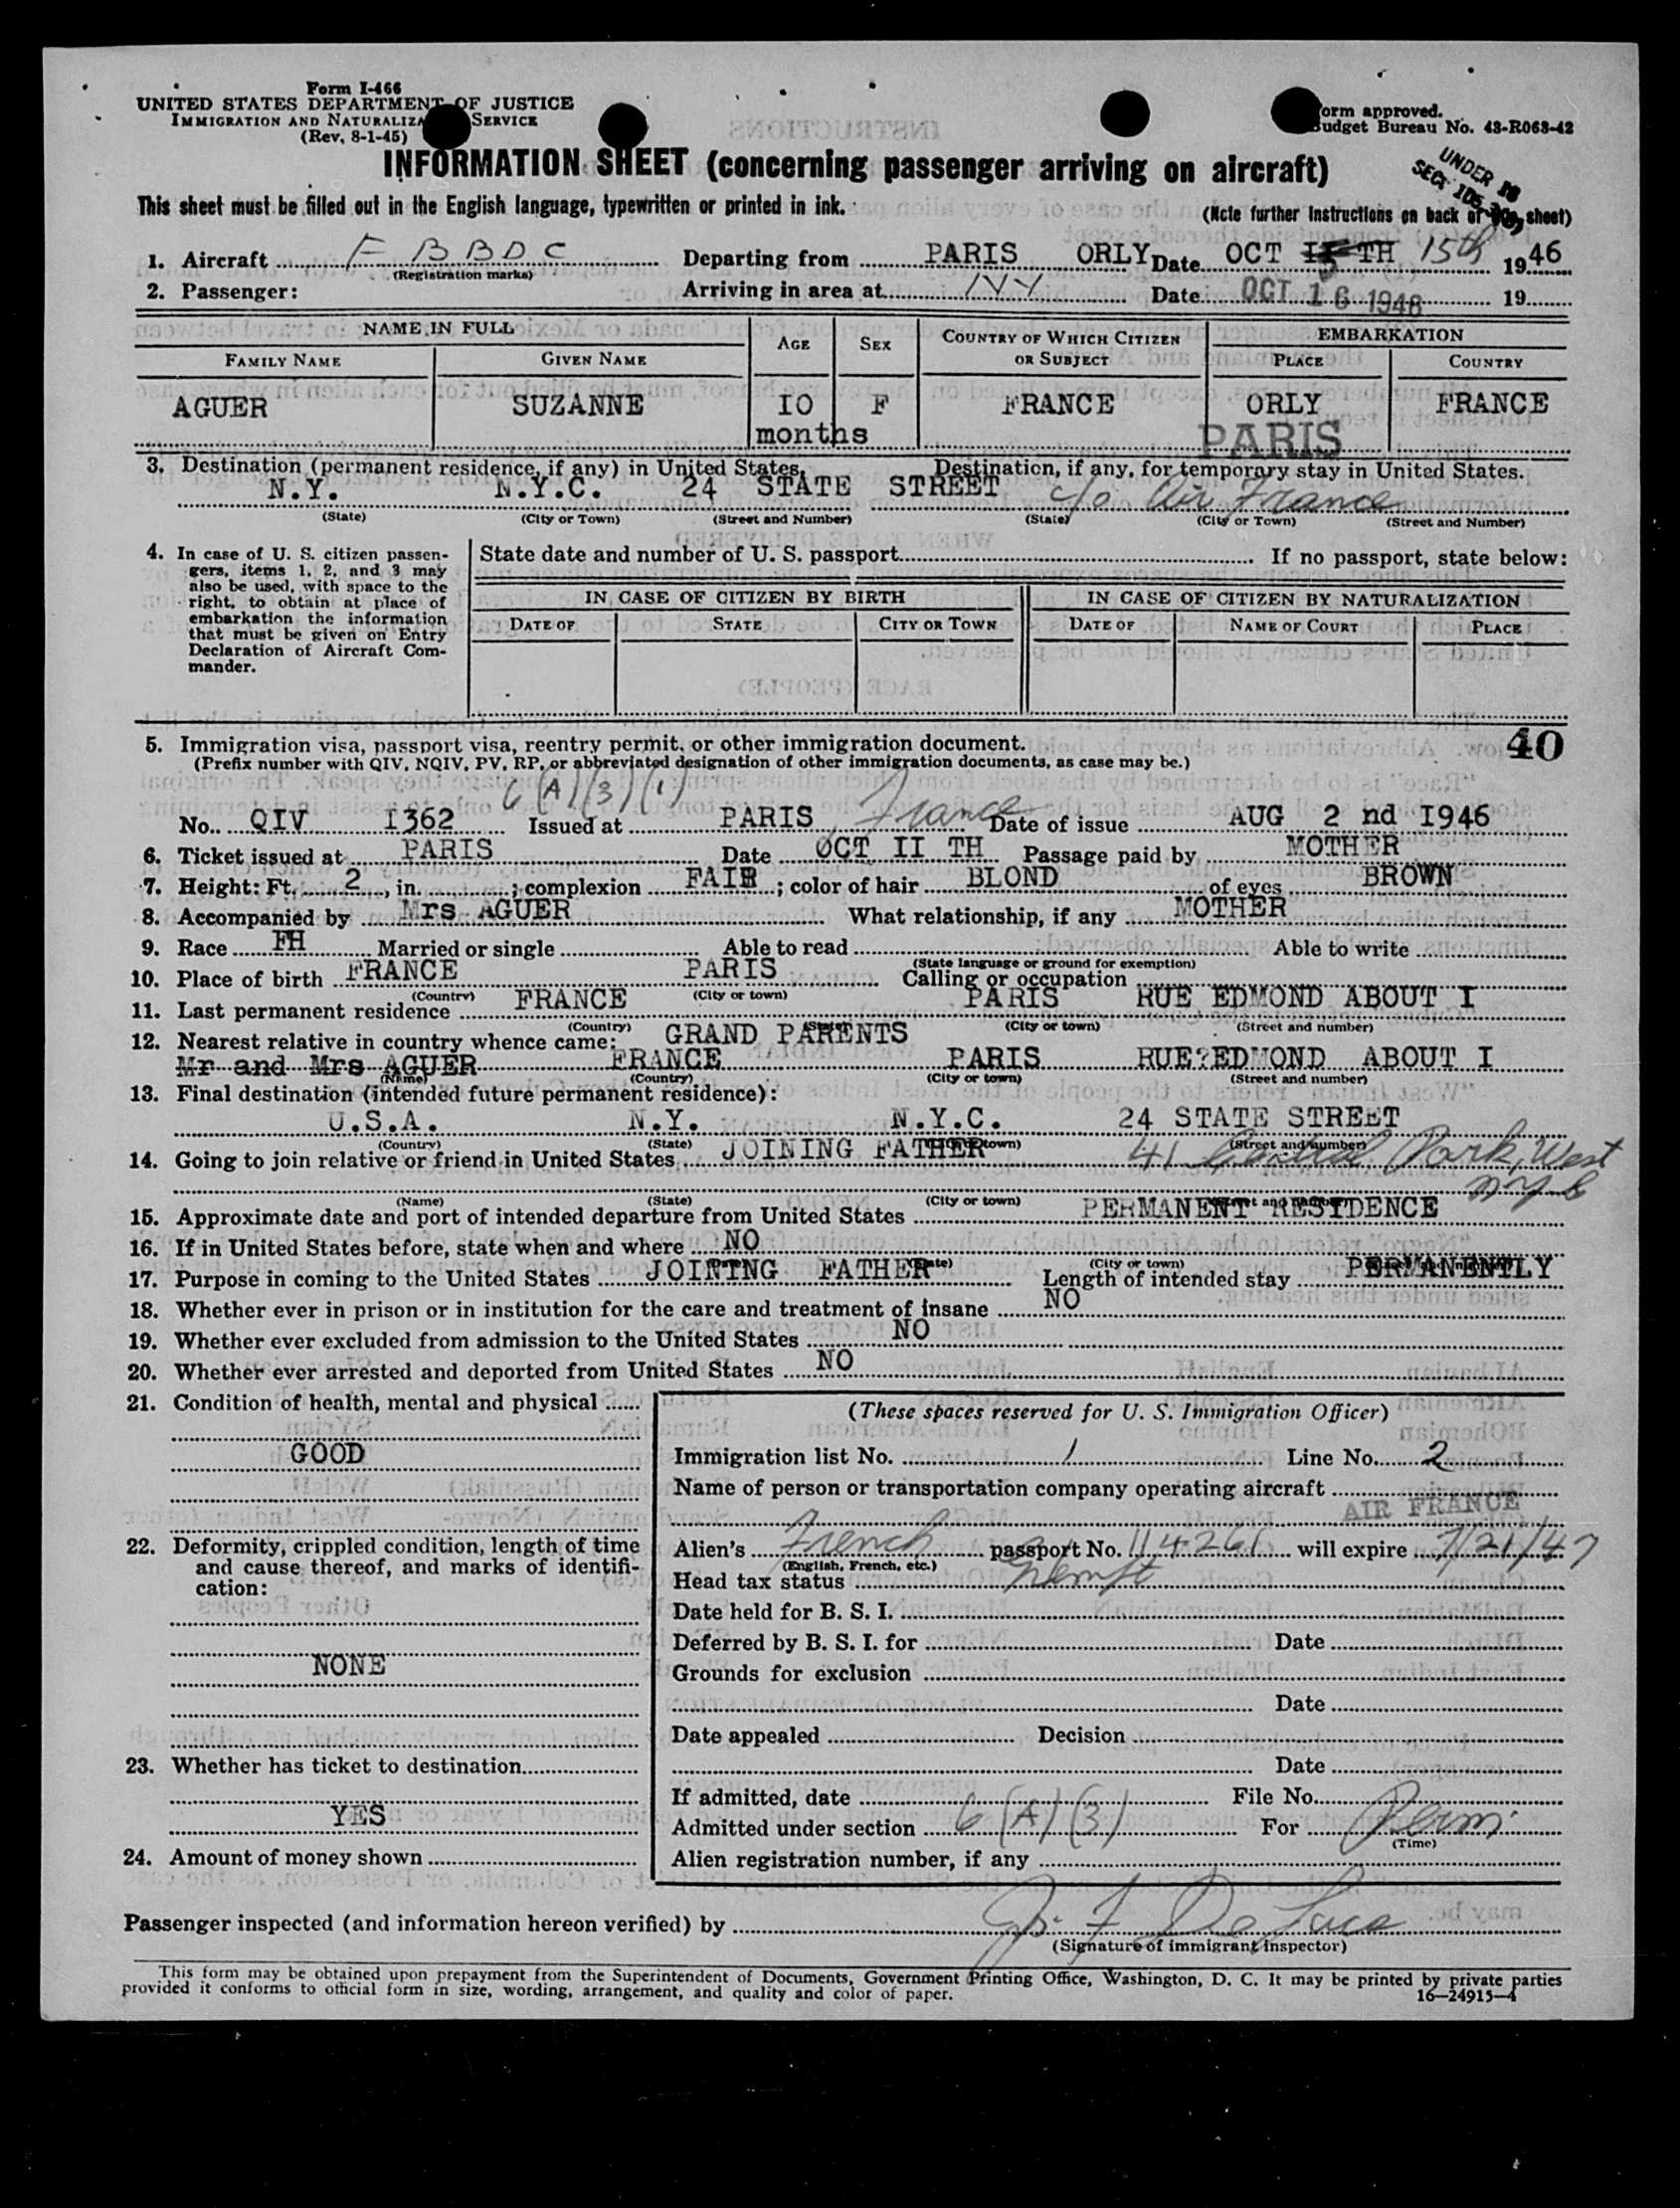 Form I-466
UNITED STATES DEPARTMENT OF JUSTICE
IMMIGRATION AND NATURALIZA SERVICE
(Rev. 8-1-45)
orm approved.
Budget Bureau No. 43-R063-42
INFORMATION SHEET (concerning passenger arriving on aircraft)
UNDER 16
SEC. 105
This sheet must be filled out in the English language, typewritten or printed in ink.
(Note further instructions on back of sheet)
1. Aircraft F BBDC Departing from PARIS ORLY Date OCT 15 TH 15th 1946
(Registration marks)
2. Passenger: Arriving in area at NY Date OCT 16 1946 19
NAME IN FULL AGE SEX COUNTRY OF WHICH CITIZEN OR SUBJECT EMBARKATION
FAMILY NAME GIVEN NAME PLACE COUNTRY
AGUER SUZANNE IO months F FRANCE ORLY FRANCE
PARIS
3. Destination (permanent residence, if any) in United States. Destination, if any, for temporary stay in United States.
N.Y. N.Y.C. 24 STATE STREET c/o Air France
(State) (City or Town) (Street and Number) (State) (City or Town) (Street and Number)
4. In case of U. S. citizen passen-
gers, items 1, 2, and 3 may
also be used, with space to the
right, to obtain at place of
embarkation the information
that must be given on Entry
Declaration of Aircraft Com-
mander.
State date and number of U. S. passport If no passport, state below:
IN CASE OF CITIZEN BY BIRTH IN CASE OF CITIZEN BY NATURALIZATION
DATE OF STATE CITY OR TOWN DATE OF NAME OF COURT PLACE
40
5. Immigration visa, passport visa, reentry permit, or other immigration document.
(Prefix number with QIV, NQIV, PV, RP, or abbreviated designation of other immigration documents, as case may be.)
6 (A) (3) (1)
No. QIV I362 Issued at PARIS, France Date of issue AUG 2 nd I946
6. Ticket issued at PARIS Date OCT II TH Passage paid by MOTHER
7. Height: Ft. 2, in. ; complexion FAIR; color of hair BLOND of eyes BROWN
8. Accompanied by Mrs AGUER What relationship, if any MOTHER
9. Race FH Married or single Able to read Able to write
(State language or ground for exemption)
10. Place of birth FRANCE PARIS Calling or occupation
(Country) (City or town)
11. Last permanent residence FRANCE PARIS RUE EDMOND ABOUT I
(Country) (State) (City or town) (Street and number)
12. Nearest relative in country whence came: GRAND PARENTS
Mr and Mrs AGUER FRANCE PARIS RUE EDMOND ABOUT I
(Name) (Country) (City or town) (Street and number)
13. Final destination (intended future permanent residence):
U.S.A. N.Y. N.Y.C. 24 STATE STREET
(Country) (State) (City or town) (Street and number)
14. Going to join relative or friend in United States JOINING FATHER 41 Central Park, West
N.Y.C
(Name) (State) (City or town) (Street and number)
15. Approximate date and port of intended departure from United States PERMANENT RESIDENCE
16. If in United States before, state when and where NO
(Date) (City or town)
17. Purpose in coming to the United States JOINING FATHER Length of intended stay PERMANENTLY
18. Whether ever in prison or in institution for the care and treatment of insane NO
19. Whether ever excluded from admission to the United States NO
20. Whether ever arrested and deported from United States NO
21. Condition of health, mental and physical
GOOD
22. Deformity, crippled condition, length of time
and cause thereof, and marks of identifi-
cation:
NONE
23. Whether has ticket to destination
YES
24. Amount of money shown
(These spaces reserved for U. S. Immigration Officer)
Immigration list No. 1 Line No. 2
Name of person or transportation company operating aircraft
AIR FRANCE
Alien's French passport No. 114261 will expire 7/21/47
(English, French, etc.)
Head tax status Exempt
Date held for B. S. I.
Deferred by B. S. I. for Date
Grounds for exclusion
Date
Date appealed Decision
Date
If admitted, date File No.
Admitted under section 6 (A) (3) For Perm.
(Time)
Alien registration number, if any
Passenger inspected (and information hereon verified) by
(Signature of immigrant inspector)
This form may be obtained upon prepayment from the Superintendent of Documents, Government Printing Office, Washington, D. C. It may be printed by private parties
provided it conforms to official form in size, wording, arrangement, and quality and color of paper.
16—24915-4